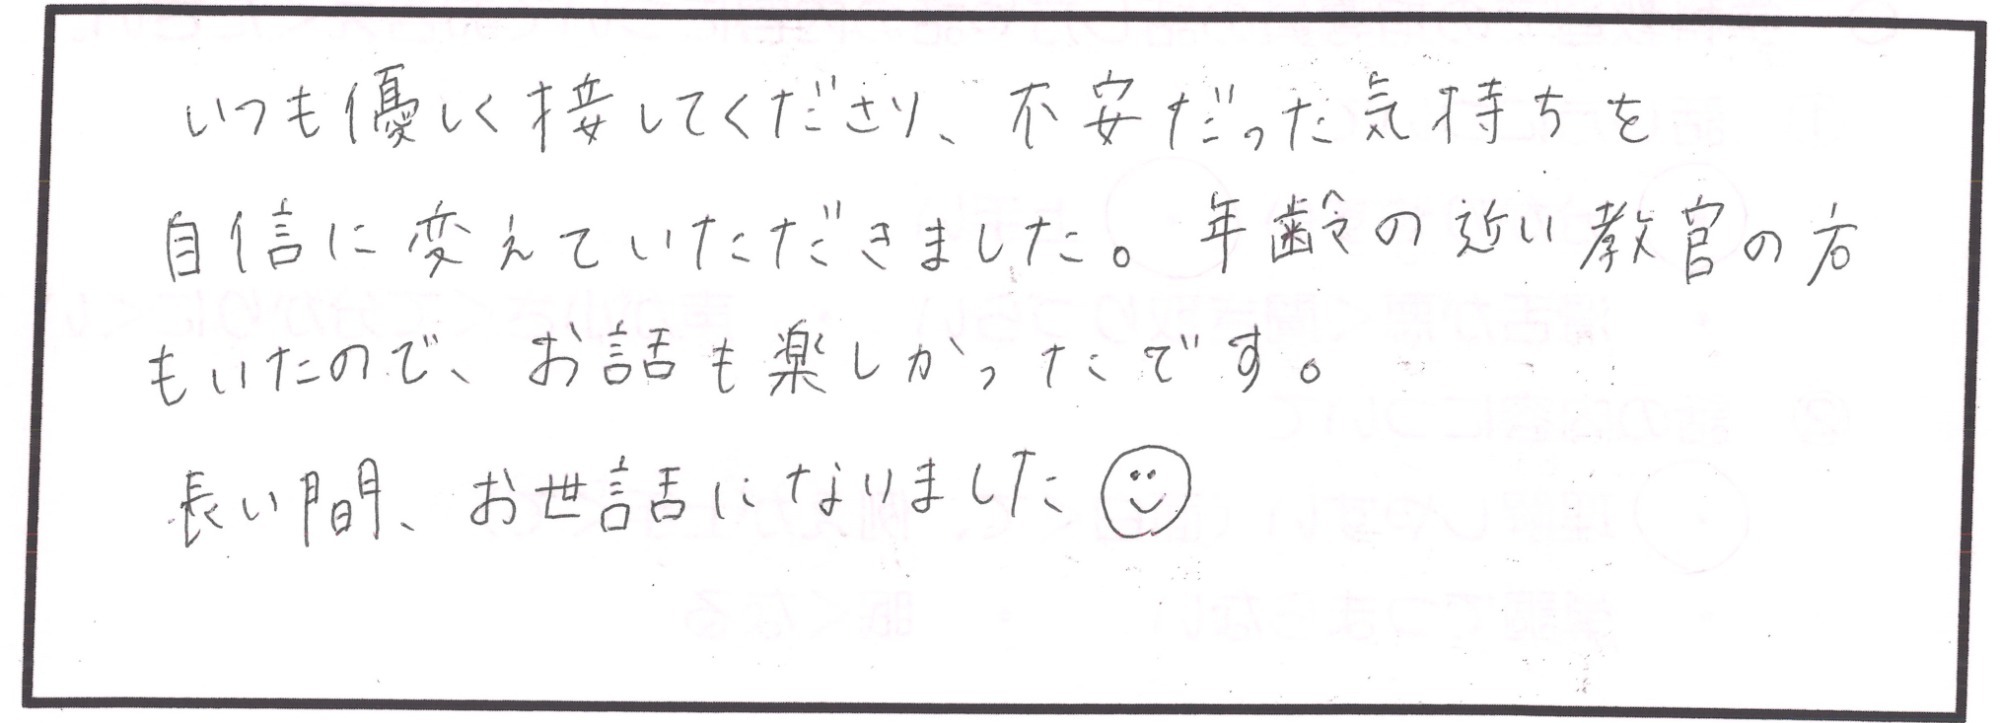 いつも優しく接してくださり、不安だった気持ちを
自信に変えていただきました。年齢の近い教官の方
もいたので、お話も楽しかったです。
長い間、お世話になりました☺